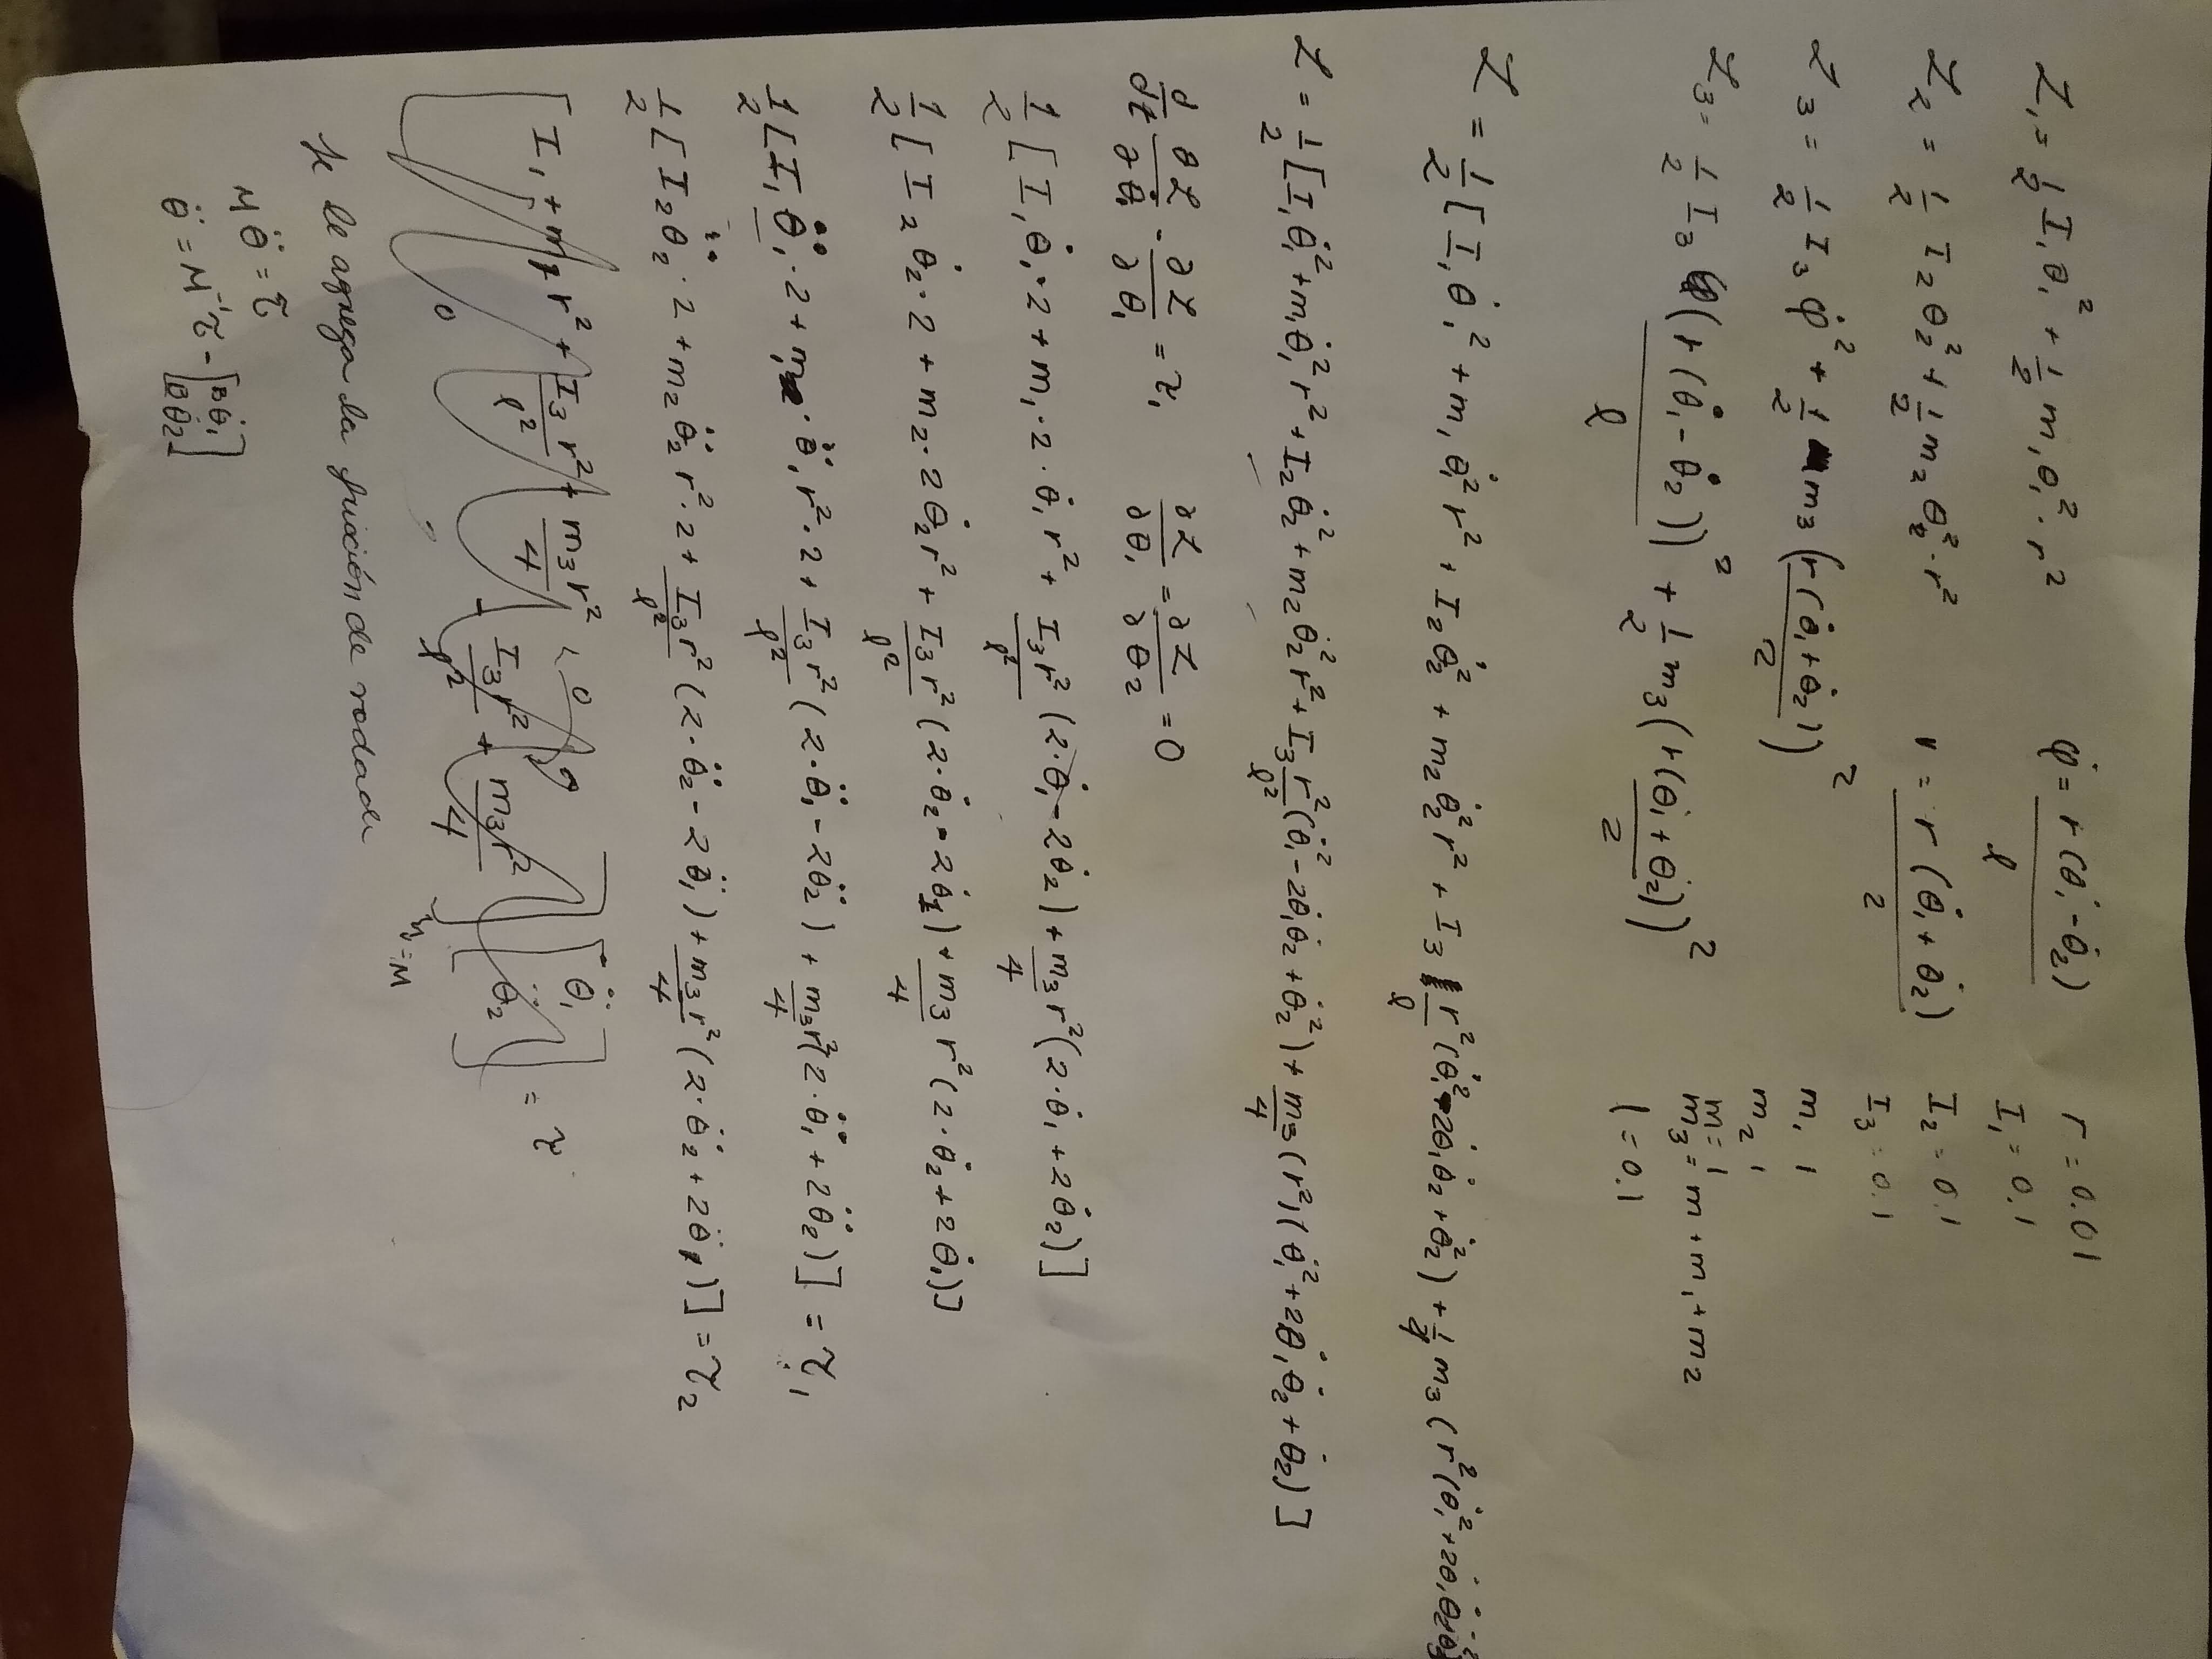 L₁ = 1/2 I₁ θ̇₁² + 1/2 m₁ θ̇₁² · r²
φ̇ = r(θ̇₁ - θ̇₂) / l
r = 0.01
L₂ = 1/2 I₂ θ̇₂² + 1/2 m₂ θ̇₂² · r²
v = r(θ̇₁ + θ̇₂) / 2
I₁ = 0.1
I₂ = 0.1
I₃ = 0.1
L₃ = 1/2 I₃ φ̇² + 1/2 m₃ (r(θ̇₁ + θ̇₂) / 2)²
m₁ 1
m₂ 1
m = 1
m₃ = m + m₁ + m₂
L₃ = 1/2 I₃ (r(θ̇₁ - θ̇₂) / l)² + 1/2 m₃ (r(θ̇₁ + θ̇₂) / 2)²
l = 0.1
L = 1/2 [I₁ θ̇₁² + m₁ θ̇₁² r² + I₂ θ̇₂² + m₂ θ̇₂² r² + I₃ r²/l (θ̇₁² - 2θ̇₁θ̇₂ + θ̇₂²) + 1/4 m₃ (r² (θ̇₁² + 2θ̇₁θ̇₂ + θ̇₂²
L = 1/2 [I₁ θ̇₁² + m₁ θ̇₁² r² + I₂ θ̇₂² + m₂ θ̇₂² r² + I₃/l² r² (θ̇₁² - 2θ̇₁θ̇₂ + θ̇₂²) + m₃/4 (r²)(θ̇₁² + 2θ̇₁θ̇₂ + θ̇₂)]
d/dt ∂L/∂θ̇₁ - ∂L/∂θ₁ = τ₁ ∂L/∂θ₁ = ∂L/∂θ₂ = 0
1/2 [I₁ θ̇₁ · 2 + m₁ · 2 · θ̇₁ r² + I₃/l² r² (2 · θ̇₁ - 2θ̇₂) + m₃/4 r² (2 · θ̇₁ + 2θ̇₂)]
1/2 [I₂ θ̇₂ · 2 + m₂ · 2 θ̇₂ r² + I₃/l² r² (2 · θ̇₂ - 2θ̇₁) + m₃/4 r² (2 · θ̇₂ + 2θ̇₁)]
1/2 [I₁ θ̈₁ · 2 + m₁ · θ̈₁ r² · 2 + I₃/l² r² (2 · θ̈₁ - 2θ̈₂) + m₃/4 r² (2 · θ̈₁ + 2θ̈₂)] = τ₁
1/2 [I₂ θ̈₂ · 2 + m₂ θ̈₂ r² · 2 + I₃/l² r² (2 · θ̈₂ - 2θ̈₁) + m₃/4 r² (2 · θ̈₂ + 2θ̈₁)] = τ₂
[I₁ + m₁ r² + I₃/l² r² + m₃/4 r² 0
0 - I₃/l² r² + m₃/4 r²] [θ̈₁ θ̈₂] = τ
= M
se le agrega la fricción de rodadura
M θ̈ = τ
θ̈ = M⁻¹ τ - [Bθ̇₁ Bθ̇₂]